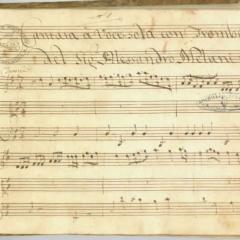 Cantata à Voce sola con Tromba
del Sig.r Alessandro Melani